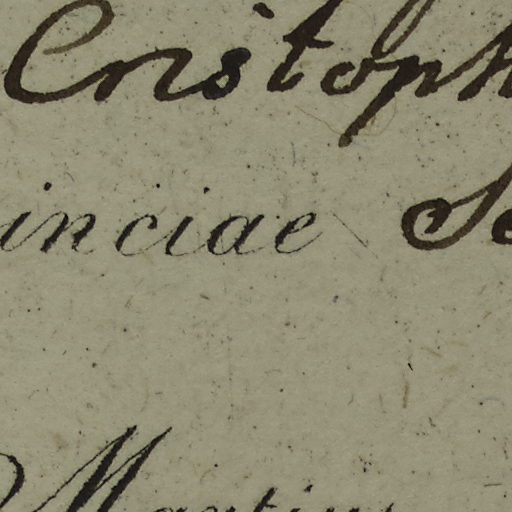 Cristoph
inciae Se
Martius